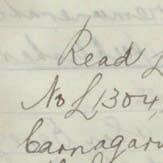 Read
No L1304,
Carnagarv